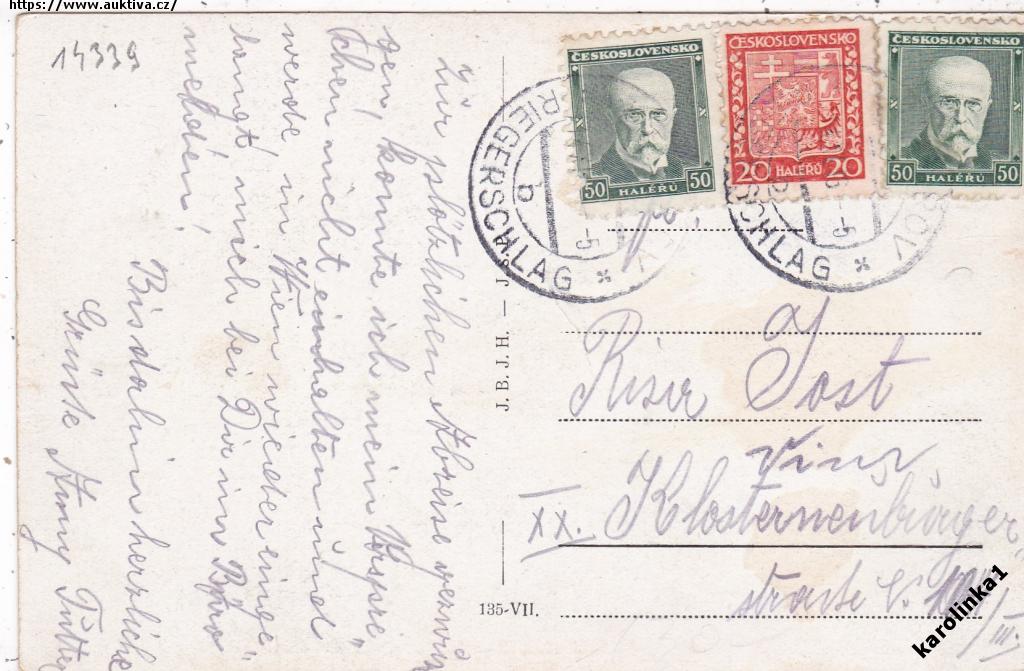 https://www.auktiva.cz/
14339
Zur plötzlichen Abreise gezwun
gen, konnte ich mein Verspre"
chen nicht einhalten und
werde in Wien wieder einge"
langt, mich bei Dir im Büro
melden!
Bis dahin herzliche
Grüsse
ČESKOSLOVENSKO
50 HALÉŘŮ 50
ČESKOSLOVENSKO
20 HALÉŘŮ 20
ČESKOSLOVENSKO
50 HALÉŘŮ 50
RIEGERSCHLAG
b
SCHLAG
OV
J. B. J. H. — J.
135-VII.
Jost
XX. Klosterneuburger
strasse
III.
karolinka1